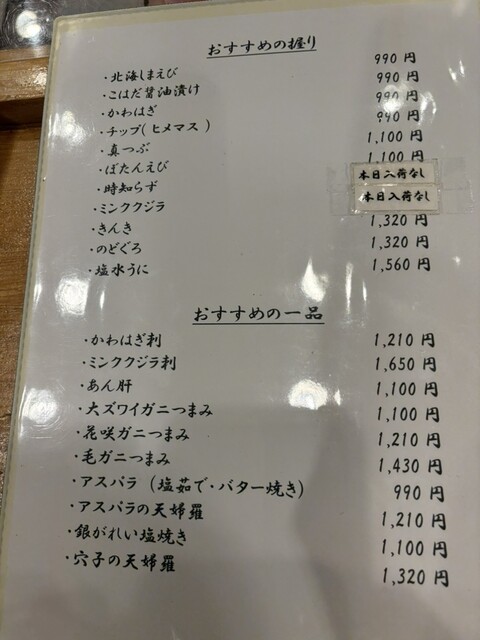 おすすめの握り
・北海しまえび 990 円
・こはだ醤油漬け 990 円
・かわはぎ 990 円
・チップ(ヒメマス) 990 円
・真つぶ 1,100 円
・ぼたんえび 1,100 円
・時知らず 本日入荷なし
・ミンククジラ 本日入荷なし
・きんき 1,320 円
・のどぐろ 1,320 円
・塩水うに 1,560 円
おすすめの一品
・かわはぎ刺 1,210 円
・ミンククジラ刺 1,650 円
・あん肝 1,100 円
・大ズワイガニつまみ 1,100 円
・花咲ガニつまみ 1,210 円
・毛ガニつまみ 1,430 円
・アスパラ (塩茹で・バター焼き) 990 円
・アスパラの天婦羅 1,210 円
・銀がれい塩焼き 1,100 円
・穴子の天婦羅 1,320 円